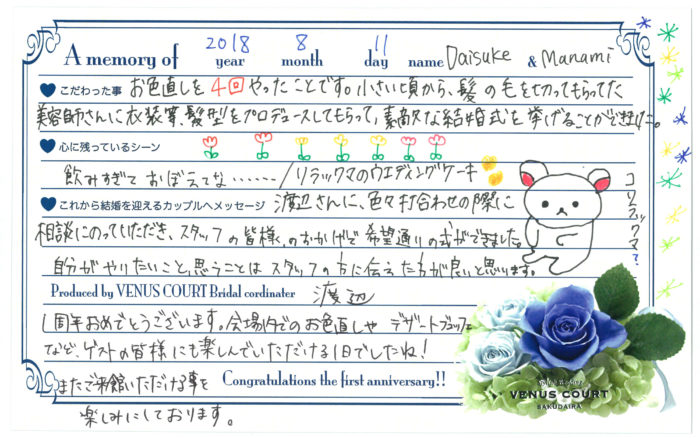 A memory of 2018 year 8 month 11 day name Daisuke & Manami
こだわった事 お色直しを4回やったことです。小さい頃から、髪の毛を切ってもらってた
美容師さんに衣装等、髪型をプロデュースしてもらって、素敵な結婚式を挙げることができました。
心に残っているシーン
飲みすぎておぼえてな……/リラックマのウエディングケーキ
これから結婚を迎えるカップルへメッセージ 渡辺さんに、色々打合わせの際に
相談にのっていただき、スタッフの皆様のおかげで希望通りの式ができました。
自分がやりたいこと、思うことはスタッフの方に伝えた方が良いと思います。
コリラックマ?
Produced by VENUS COURT Bridal cordinater 渡辺
1周年おめでとうございます。会場内でのお色直しやデザートブッフェ
など、ゲストの皆様にも楽しんでいただける1日でしたね!
またご来館いただける事を Congratulations the first anniversary!!
楽しみにしております。
VENUS COURT
SAKUDAIRA